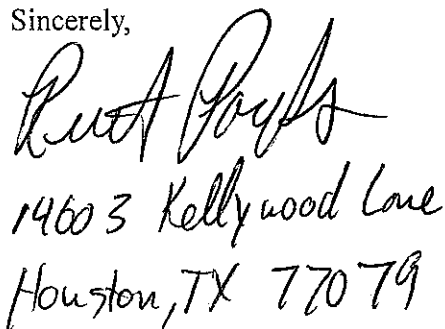 Sincerely,
14603 Kellywood Lane
Houston, TX 77079